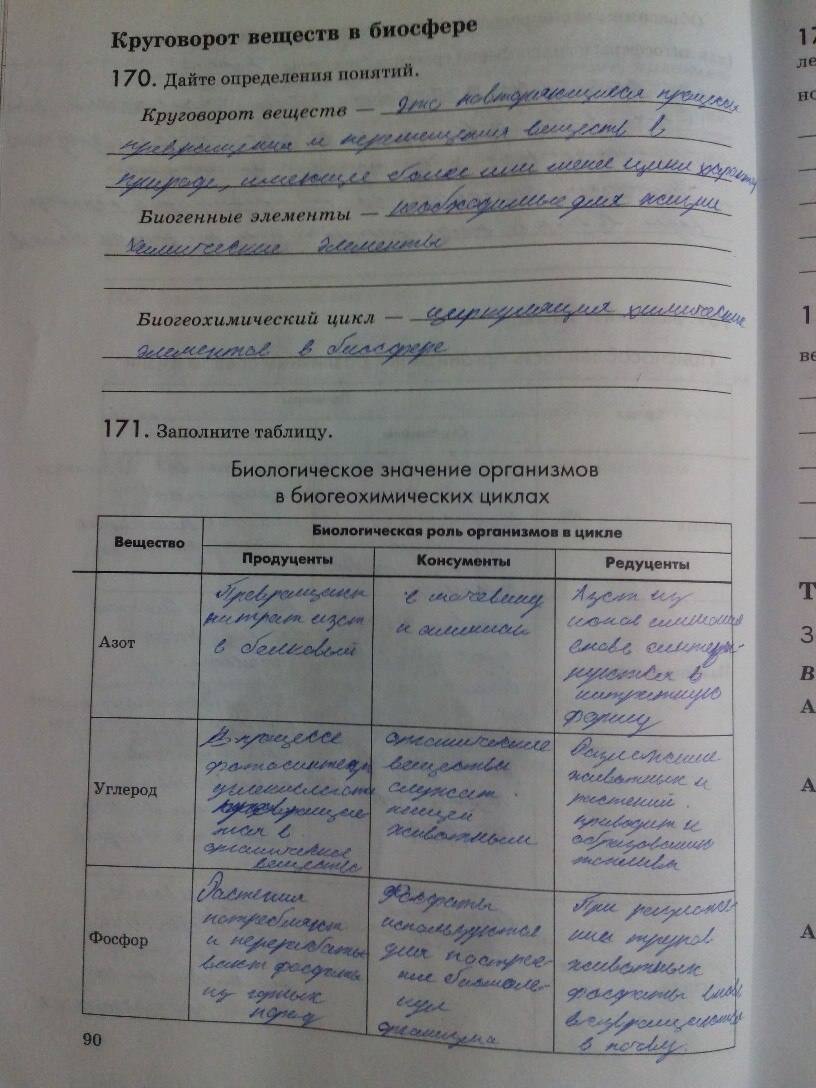 Круговорот веществ в биосфере
170. Дайте определения понятий.
Круговорот веществ — Это повторяющиеся процессы
превращения и перемещения веществ в
природе, имеющие более или менее цикл характер
Биогенные элементы — необходимые для жизни
химические элементы
Биогеохимический цикл — циркуляция химические
элементов в биосфере
171. Заполните таблицу.
Биологическое значение организмов
в биогеохимических циклах
Вещество
Биологическая роль организмов в цикле
Продуценты
Консументы
Редуценты
Азот
Превращают
нитрат азот
в белковый
в мочевину
и аммиак
Азот из
ионов аммония
снова
в
нитратную
форму
Углерод
В процессе
фотосинтеза
в
органическое
вещество
органические
вещества
служат
пищей
животным
Разложение
животных и
растений
приводит к
образованию
топлива
Фосфор
Растения
потребляют
и перерабаты-
вают фосфаты
из горных
пород
Фосфаты
используются
для построе-
ния
организма
При разложе-
нии трупов
животных
фосфаты вновь
возвращаются
в почву.
90
17
ле
но
1
ве
Т
З
В
А
А
А